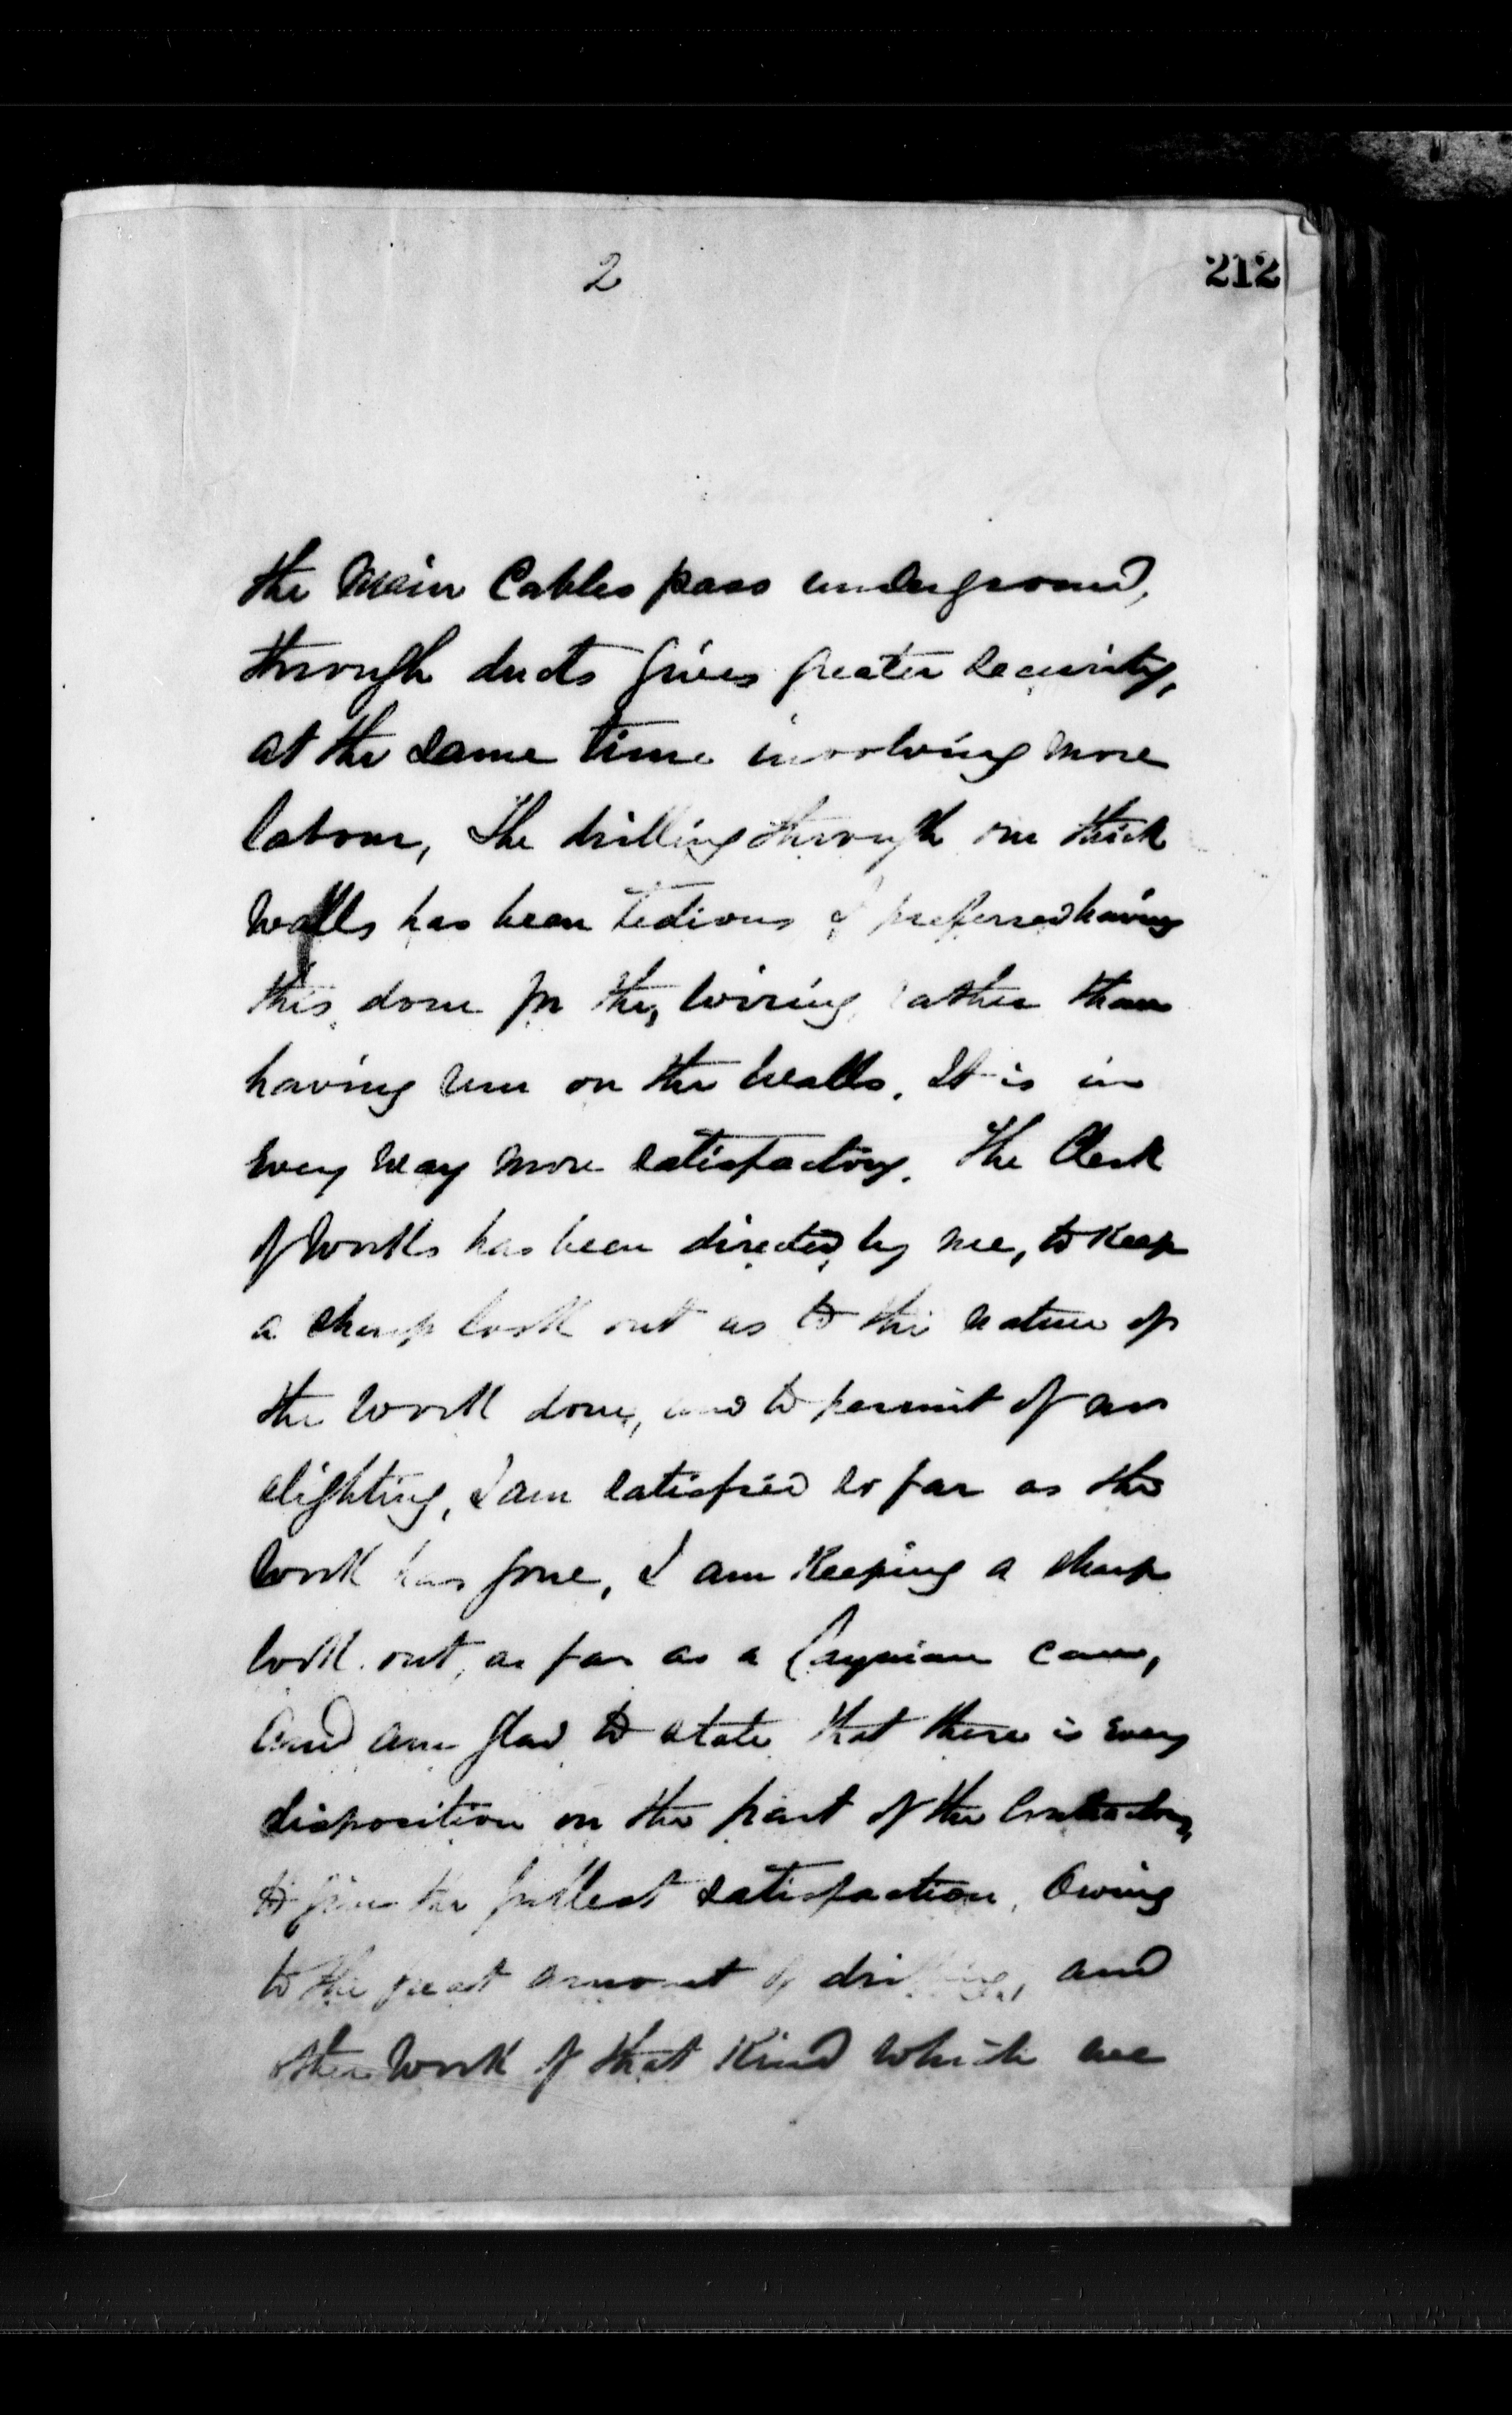 2
212
the Main Cables pass underground,
through ducts gives greater security,
at the same time involving more
labour, The drilling through our thick
walls has been tedious I preferred having
this done for the wiring, rather than
having run on the walls. It is in
every way more satisfactory. The Clerk
of Works has been directed, by me, to keep
a sharp look out as to the nature of
the work done, and to permit of no
slighting, I am satisfied so far as the
work has gone, I am keeping a sharp
look out, as far as a layman can,
and am glad to state that there is every
disposition on the part of the Contractors,
to give the fullest satisfaction. Owing
to the great amount of drilling, and
other work of that kind which we